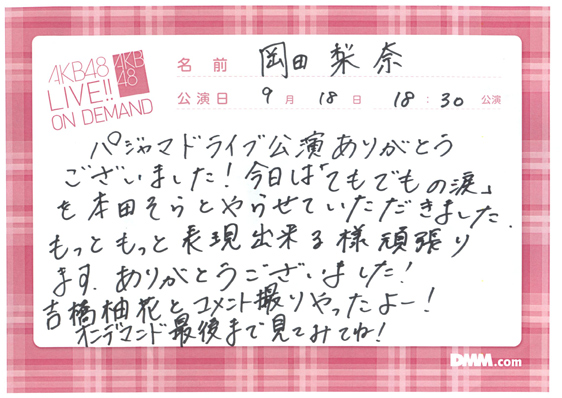 AKB48
LIVE!!
ON DEMAND
AKB
48
名前 岡田 梨奈
公演日 9月 18日 18:30公演
パジャマドライブ公演ありがとう
ございました!今日は「てもでもの涙」
を本田そらとやらせていただきました.
もっともっと表現出来る様頑張り
ます.ありがとうございました!
吉橋柚花とコメント撮りやったよー!
オンデマンド最後まで見てみてね!
DMM.com